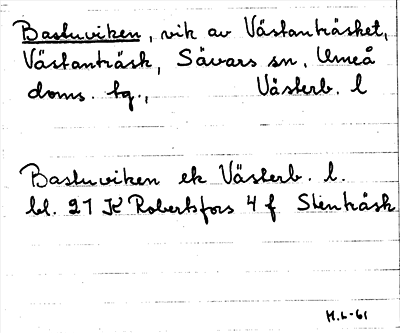 Bastuviken, vik av Västanträsket,
Västanträsk, Sävars sn, Umeå
doms. tg., Västerb. l
Bastuviken ek Västerb. l.
bl. 21 K Robertsfors 4 f Stenträsk
H.L-61